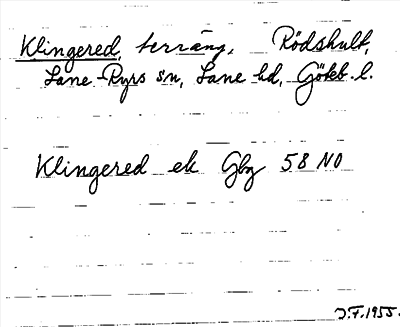 Klingered, terräng, Rödshult,
Lane-Ryrs sn, Lane hd, Göteb. l.
Klingered ek Gbg 58 NO
J.F. 1955.